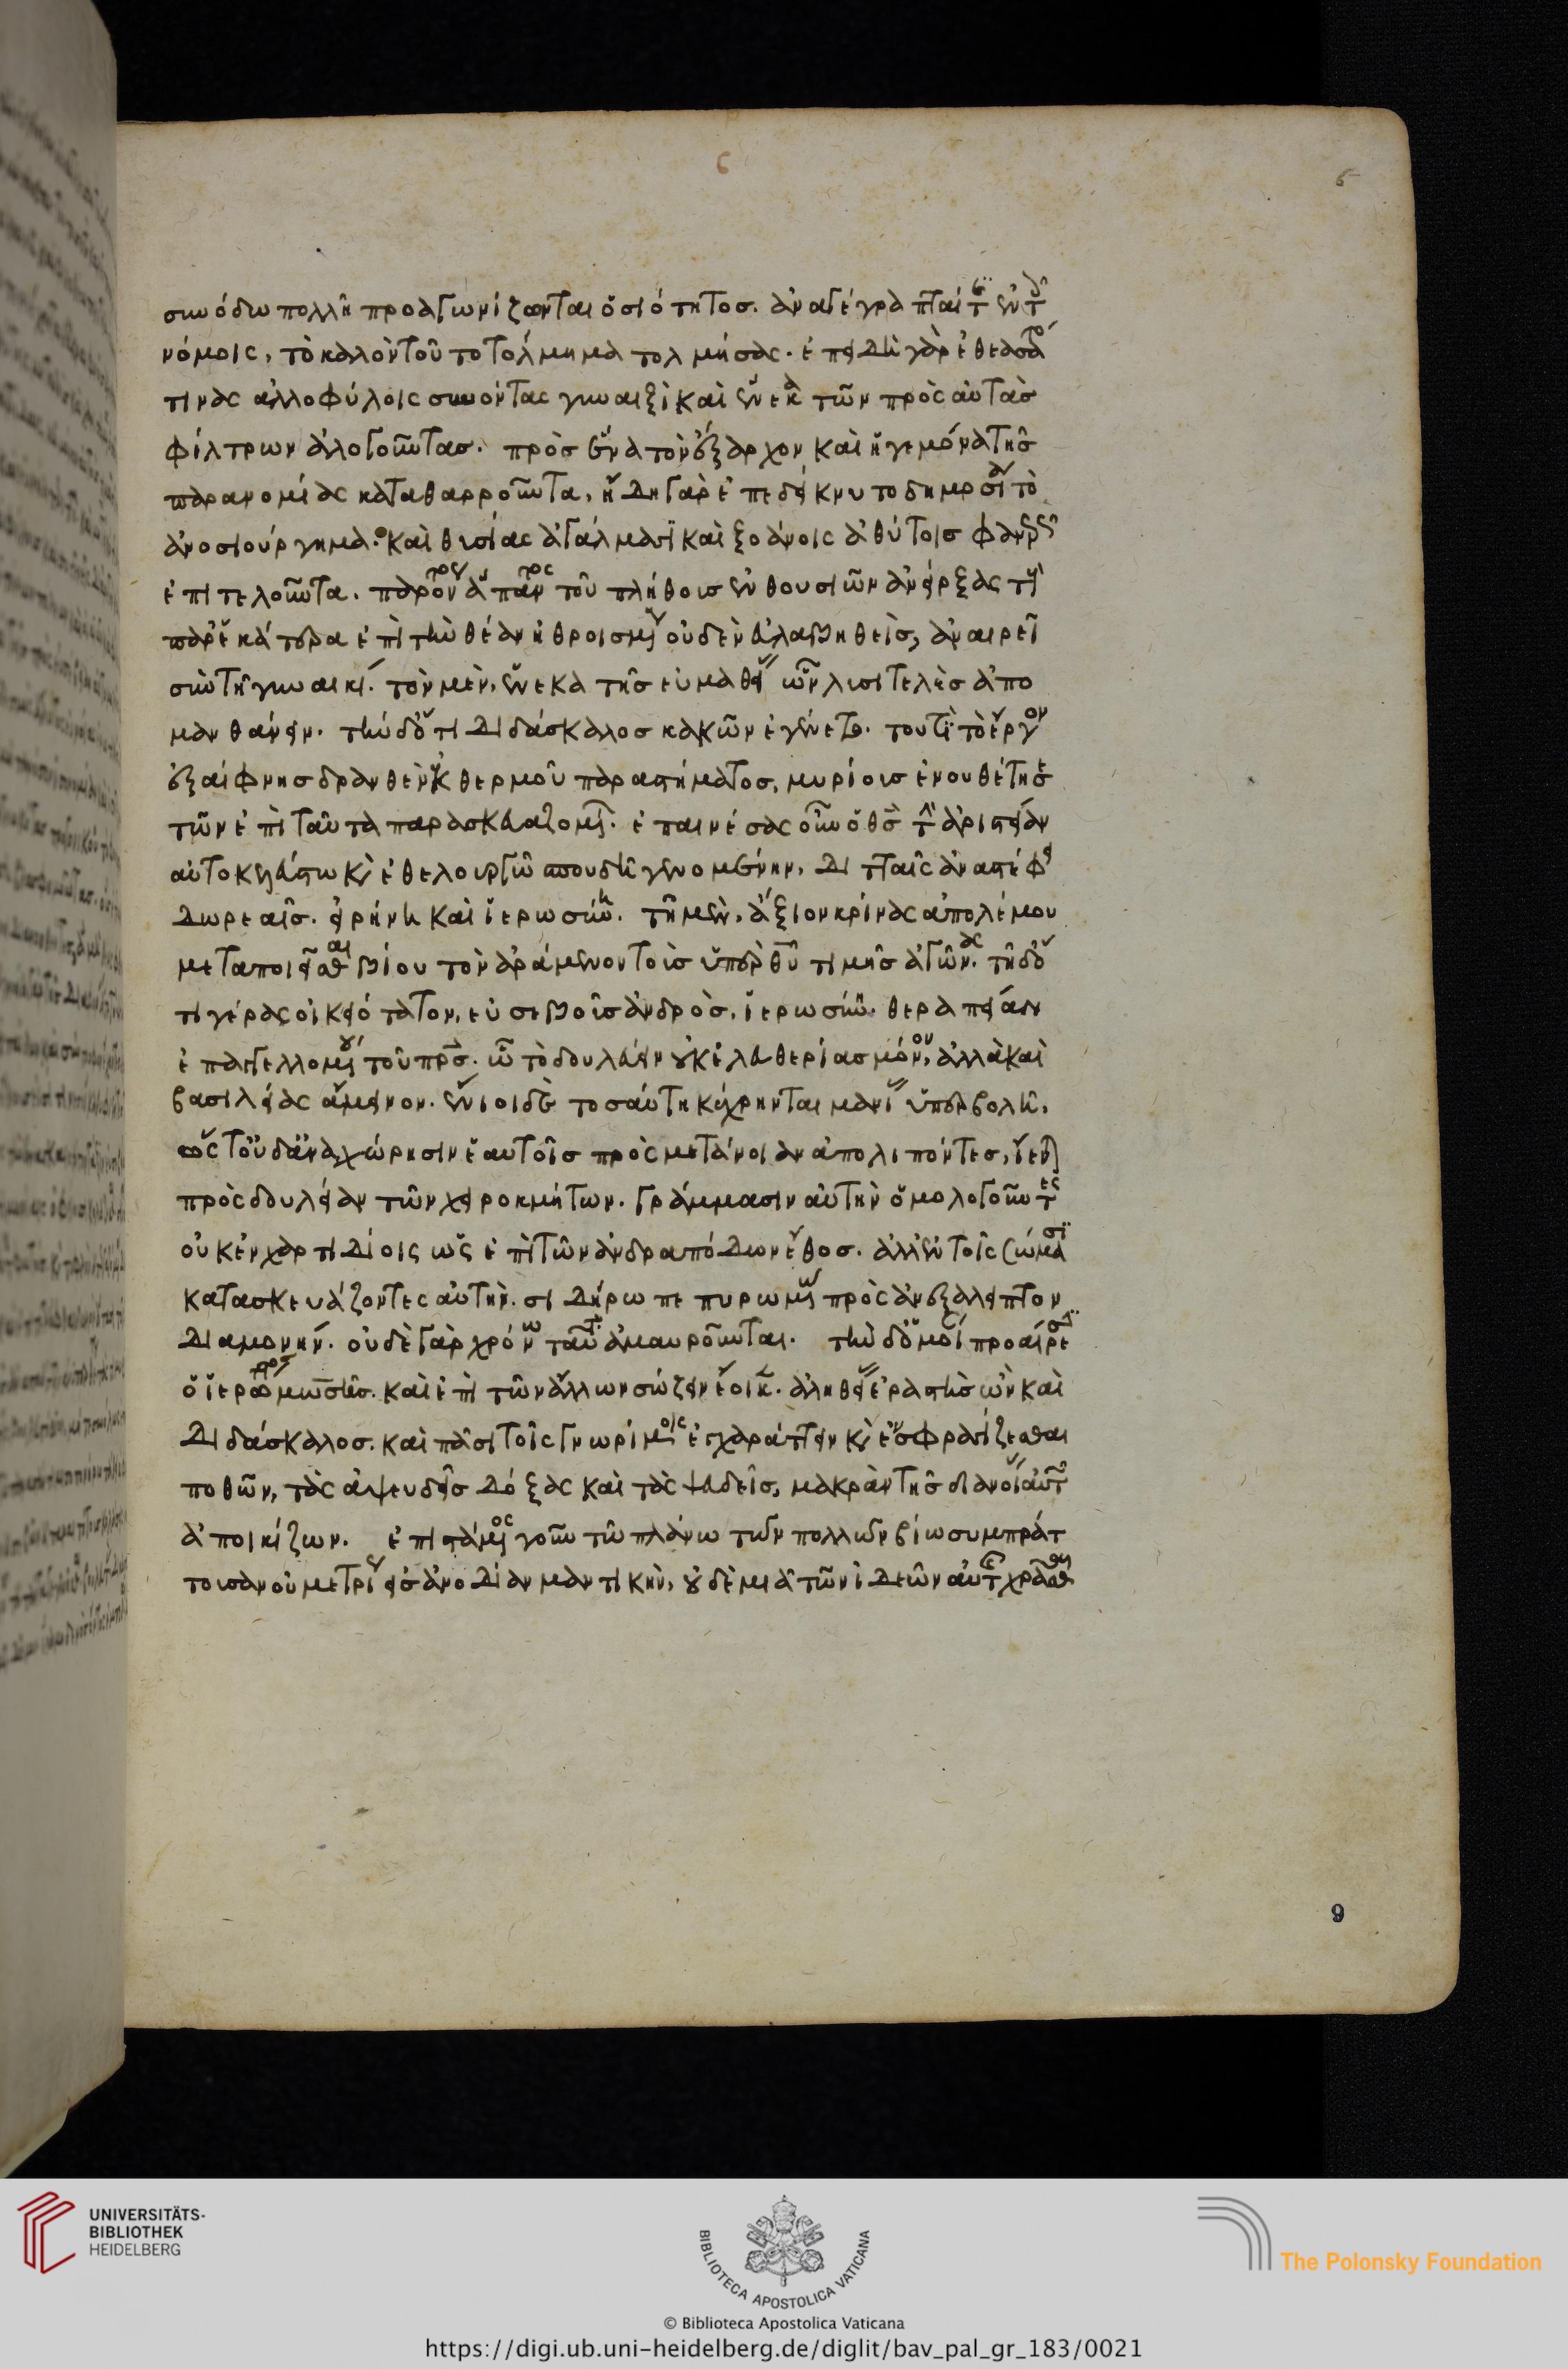 συνόδω πολλῆ προαγωνίζονται ὁσιότητοσ. ἀναγέγραπταί τ ἐν τ
νόμοις, τὸ καλὸν τοῦτο τόλμημα τολμήσας. ἐπειδὴ γὰρ ἐθεάσατό
τινὰς ἀλλοφύλοις συνόντας γυναιξὶ καὶ ἕνεκα τῶν πρὸς αὐτὰσ
φίλτρων ἀλογοῦντασ. πρὸσ ἕνα τὸν ἔξαρχον καὶ ἡγεμόνα τῆσ
παρανομίας καταθαρροῦντα, ἤδη γὰρ ἐπεδείκνυτο δημοσία τὸ
ἀνοσιούργημα. καὶ θυσίας ἀγάλμασι καὶ ξοάνοις ἀθύτοισ φανερῶς
ἐπιτελοῦντα. παρόντος ἅπαντος τοῦ πλήθουσ ἐνθουσιῶν ἀνείρξας τὴν
παρ' ἑκάτερα ἐπὶ τὴν θέαν ἠθροισμένων οὐδὲν εὐλαβηθεὶσ, ἀναιρεῖ
σὺν τῆ γυναικί. τὸν μὲν, ἕνεκα τῆσ εὐμαθείας ὧν λυσιτελὲσ ἀπο
μανθάνειν. τὴν δ' ὅτι διδάσκαλοσ κακῶν ἐγένετο. τουτὶ τὸ ἔργον
ἐξαίφνησ δρασθὲν ἐκ θερμοῦ παραστήματοσ, μυρίουσ ἐνουθέτησε
τῶν ἐπὶ ταῦτα παρασκευαζομένων. ἐπαινέσας οὖν ὁ θσ τὴν ἀριστείαν
αὐτοκελεύστω καὶ ἐθελουργῶ σπουδῆ γενομένην, διτταῖς ἀναστέφει
δωρεαῖσ. εἰρήνη καὶ ἱερωσύνη. τῆ μὲν, ἄξιον κρίνας ἀπολέμου
μεταποιεῖσθαι βίου τὸν ἀράμενον τοὺσ ὑπὲρ θῦ τιμῆσ ἀγῶνας. τῆ δ' ὅ
τι γέρας οἰκειότατον, εὐσεβοῦσ ἀνδρὸσ, ἱερωσύνη. θεραπείαν
ἐπαγγελλομένη τοῦ πρσ. ὧ τὸ δουλεύειν οὐκ ἐλευθερίασ μόνον, ἀλλὰ καὶ
βασιλείας ἄμεινον. ἔνιοι δὲ τοσαύτη κέχρηνται μανίας ὑπερβολῆ,
ὡς τοῦδ' ἀναχώρησιν ἑαυτοῖσ πρὸς μετάνοιαν ἀπολιπόντεσ, ἵενται
πρὸς δουλείαν τῶν χειροκμήτων. γράμμασιν αὐτὴν ὁμολογοῦντες
οὐκ ἐν χαρτιδίοις ὡς ἐπὶ τῶν ἀνδραπόδων ἔθοσ. ἀλλ' ἐν τοῖς σώμασι
κατασκευάζοντες αὐτὴν. σιδήρω πεπυρωμένω πρὸς ἀνεξάλειπτον
διαμονήν. οὐδὲ γὰρ χρόνω ταῦτ' ἀμαυροῦνται. τὴν δ' ὁμοίαν προαίρεσιν
ὁ ἱεροφάντης μωσῆσ. καὶ ἐπὶ τῶν ἄλλων σώζειν ἔοικεν. ἀληθείας ἐραστὴσ ὢν καὶ
διδάσκαλοσ. καὶ πᾶσι τοῖς γνωρίμοις ἐγχαράττειν καὶ ἐνσφραγίζεσθαι
ποθῶν, τὰς ἀψευδεῖσ δόξας καὶ τὰς ψευδεῖσ, μακρὰν τῆσ διανοίας αὐτῶν
ἀποικίζων. ἐπιστάμενος γοῦν τῶ πλάνω τῶν πολλῶν βίω συμπράτ
τουσαν οὐ μετρίως εἰσ ἀνοδίαν μαντικὴν, οὐδὲ μιᾶ τῶν ἰδεῶν αὐτῆς χρᾶσθαι
9
UNIVERSITÄTS-
BIBLIOTHEK
HEIDELBERG
BIBLIOTECA APOSTOLICA VATICANA
The Polonsky Foundation
© Biblioteca Apostolica Vaticana
https://digi.ub.uni-heidelberg.de/diglit/bav_pal_gr_183/0021